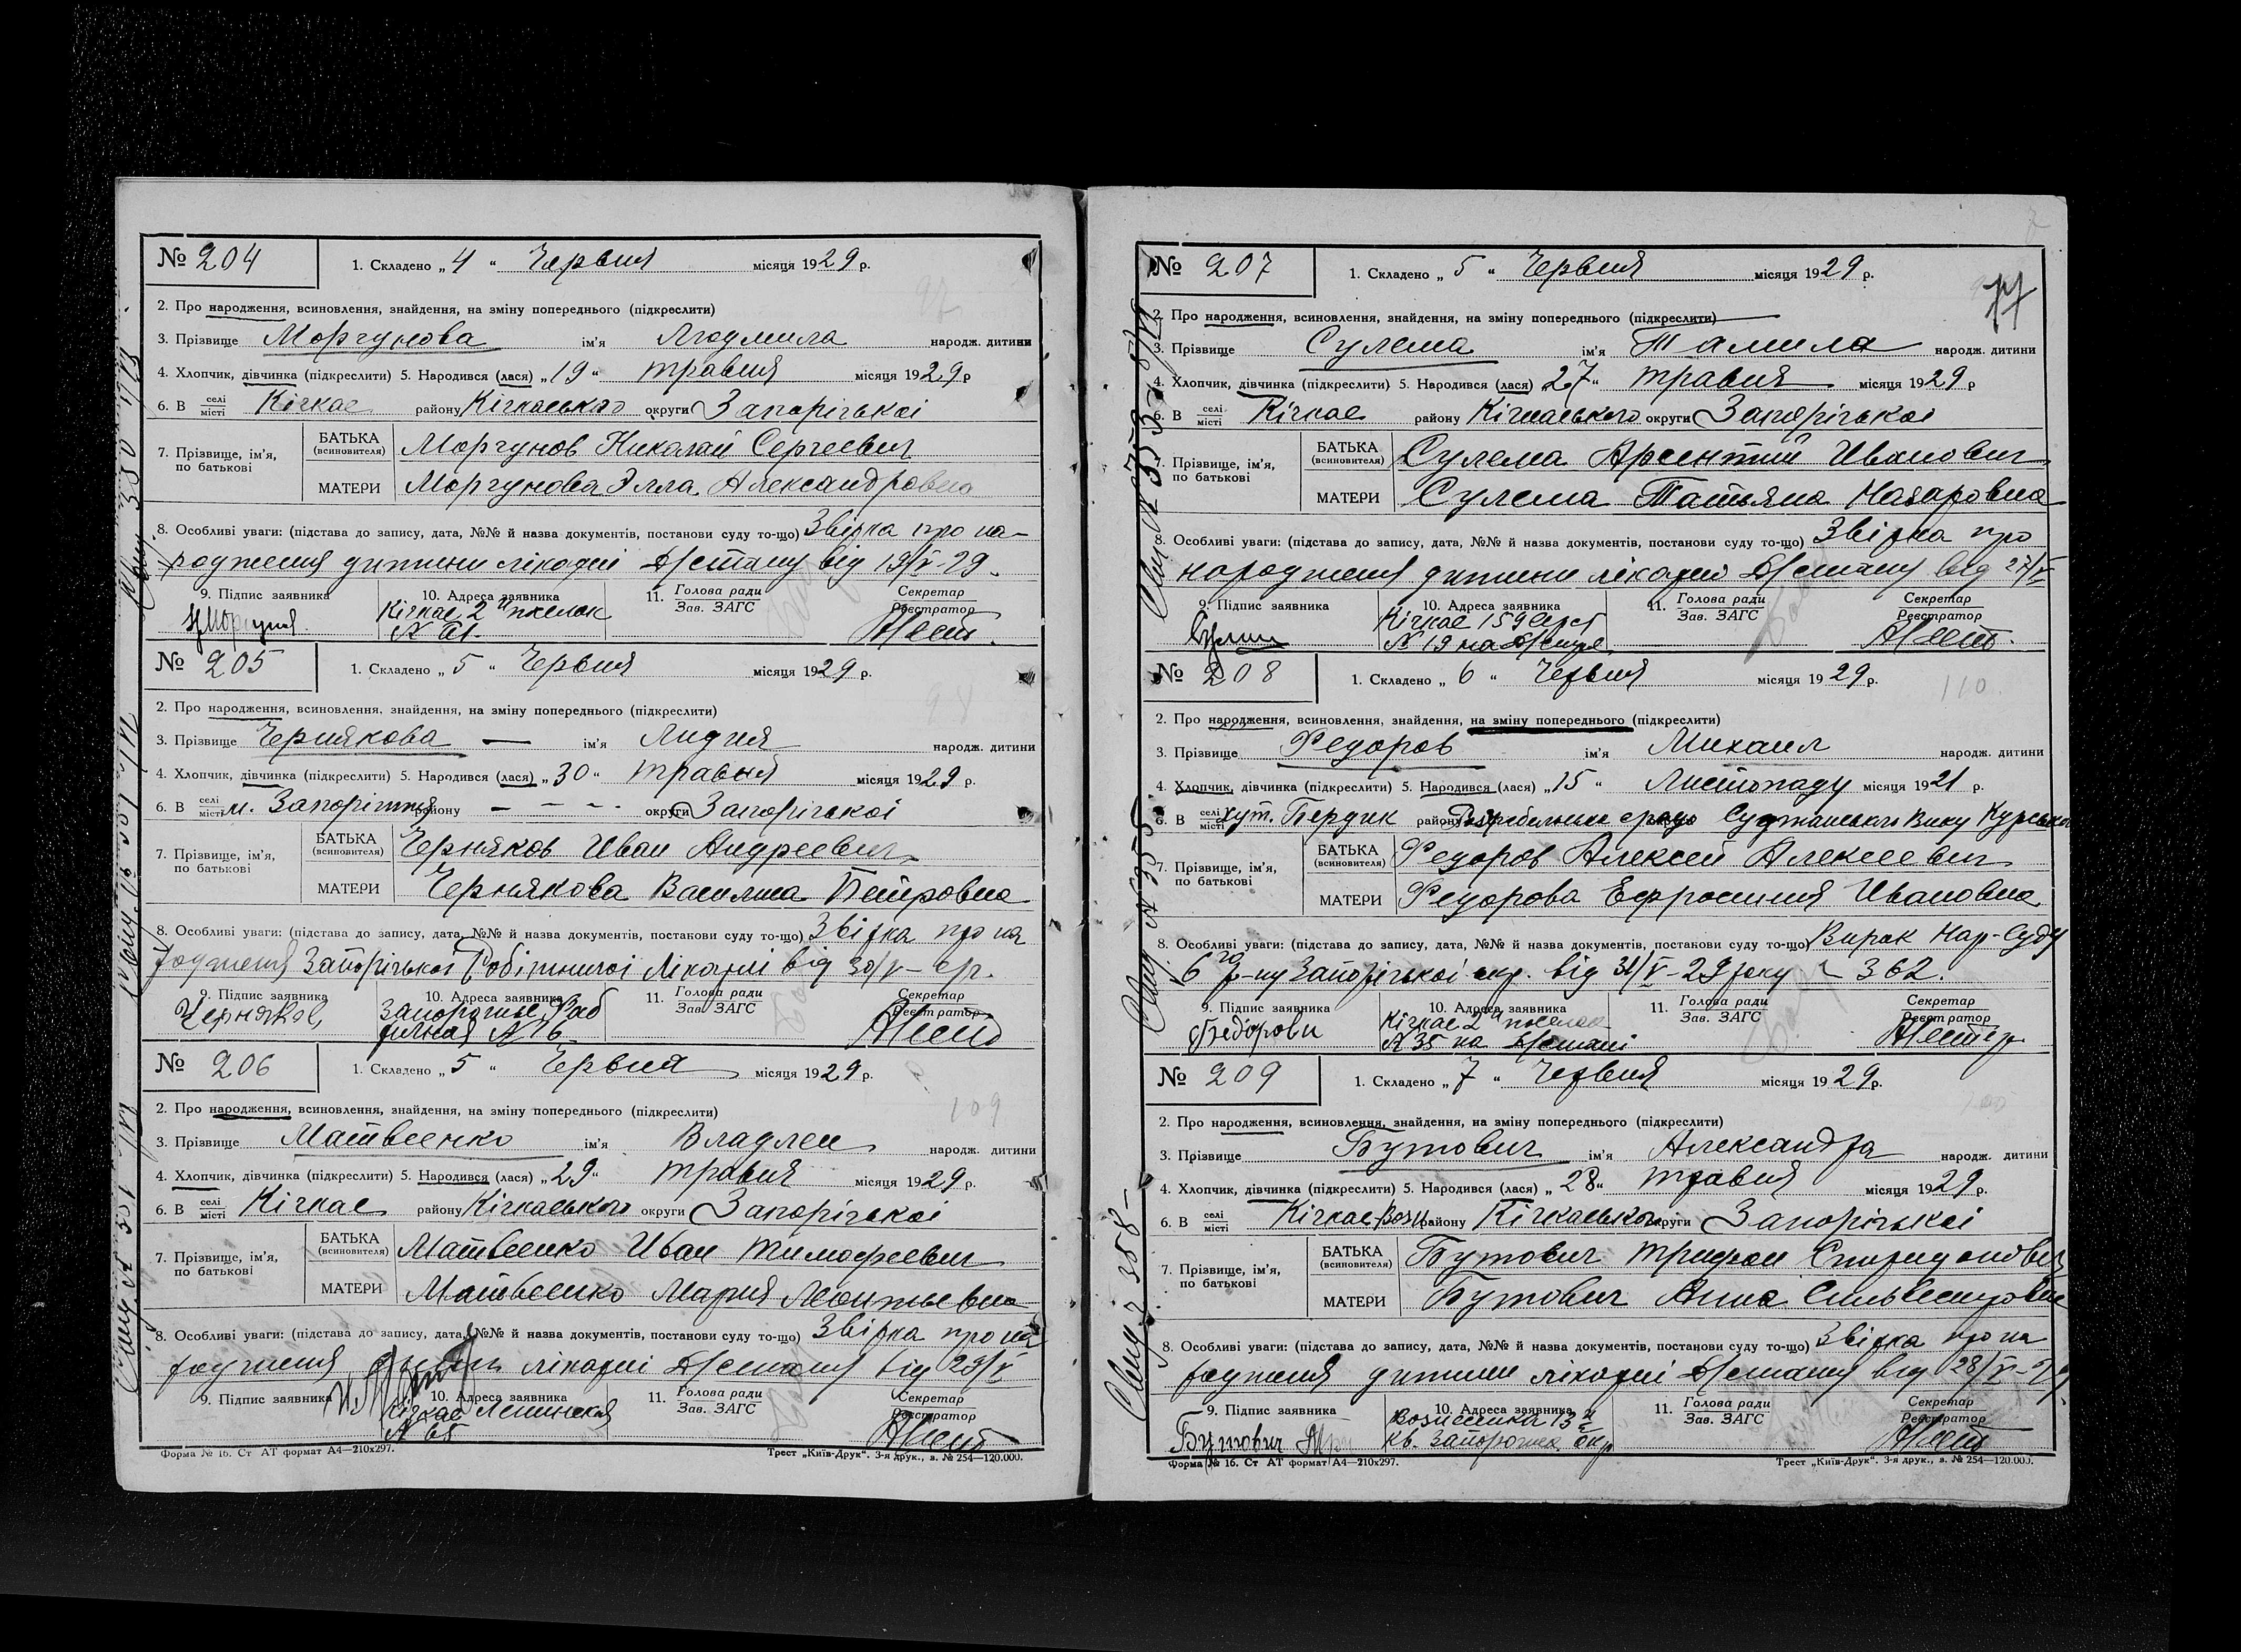 № 204 1. Складено „4" Червня місяця 1929 р.
2. Про народження, всиновлення, знайдення, на зміну попереднього (підкреслити)
3. Прізвище Моргунова ім'я Людмила народж. дитини
4. Хлопчик, дівчинка (підкреслити) 5. Народився (лася) „19" травня місяця 1929 р
6. В селі місті Кічкас району Кічкаського округи Запорізької
7. Прізвище, ім'я, по батькові
БАТЬКА (всиновителя) Моргунов Николай Сергеевич
МАТЕРИ Моргунова Элла Александровна
8. Особливі уваги: (підстава до запису, дата, №№ й назва документів, постанови суду то-що) Звірка про на-
родження дитини лікарні від 19/V-29.
9. Підпис заявника 10. Адреса заявника 11. Голова ради Зав. ЗАГС Секретар Реєстратор
Кічкас 2й поселок
№ 61.
№ 205 1. Складено „5" Червня місяця 1929 р.
2. Про народження, всиновлення, знайдення, на зміну попереднього (підкреслити)
3. Прізвище Чернякова — ім'я Лидия народж. дитини
4. Хлопчик, дівчинка (підкреслити) 5. Народився (лася) „30" травня місяця 1929 р.
6. В селі місті м. Запоріжжя району - - - - округи Запорізької
7. Прізвище, ім'я, по батькові
БАТЬКА (всиновителя) Черняков Иван Андреевич
МАТЕРИ Чернякова Василиса Петровна
8. Особливі уваги: (підстава до запису, дата, №№ й назва документів, постанови суду то-що) Звірка про на
родження Запорізької Робітничої Лікарні від 30/V- ср.
9. Підпис заявника 10. Адреса заявника 11. Голова ради Зав. ЗАГС Секретар Реєстратор
Черняков Запорожье Фаб
ричная № 6
№ 206 1. Складено „5" Червня місяця 1929 р.
109
2. Про народження, всиновлення, знайдення, на зміну попереднього (підкреслити)
3. Прізвище Матвеенко ім'я Владлен народж. дитини
4. Хлопчик, дівчинка (підкреслити) 5. Народився (лася) „29" травня місяця 1929 р.
6. В селі місті Кічкас району Кічкаського округи Запорізької
7. Прізвище, ім'я, по батькові
БАТЬКА (всиновителя) Матвеенко Иван Тимофеевич
МАТЕРИ Матвеенко Мария Леонтьевна
8. Особливі уваги: (підстава до запису, дата, №№ й назва документів, постанови суду то-що) Звірка про на
родження дитини лікарні від 29/V
9. Підпис заявника 10. Адреса заявника 11. Голова ради Зав. ЗАГС Секретар Реєстратор
Кічкас Ленинская
№ 65
Форма № 16. Ст АТ формат А4—210х297. Трест „Київ-Друк". 3-я друк., з. № 254—120.000.
№ 207 1. Складено „5" Червня місяця 1929 р.
77
2. Про народження, всиновлення, знайдення, на зміну попереднього (підкреслити)
3. Прізвище Сулема ім'я Тамила народж. дитини
4. Хлопчик, дівчинка (підкреслити) 5. Народився (лася) „27" травня місяця 1929 р
6. В селі місті Кічкас району Кічкаського округи Запорізької
7. Прізвище, ім'я, по батькові
БАТЬКА (всиновителя) Сулема Арсентий Иванович
МАТЕРИ Сулема Татьяна Назаровна
8. Особливі уваги: (підстава до запису, дата, №№ й назва документів, постанови суду то-що) Звірка про
народження дитини лікарні від 27/V
9. Підпис заявника 10. Адреса заявника 11. Голова ради Зав. ЗАГС Секретар Реєстратор
Кічкас
№ 19 на
№ 208 1. Складено „6" Червня місяця 1929 р.
110
2. Про народження, всиновлення, знайдення, на зміну попереднього (підкреслити)
3. Прізвище Федоров ім'я Михаил народж. дитини
4. Хлопчик, дівчинка (підкреслити) 5. Народився (лася) „15" Листопаду місяця 1921 р.
6. В селі місті хут. Бердик району Суджанського Курської
7. Прізвище, ім'я, по батькові
БАТЬКА (всиновителя) Федоров Алексей Алексеевич
МАТЕРИ Федорова Ефросиния Ивановна
8. Особливі уваги: (підстава до запису, дата, №№ й назва документів, постанови суду то-що) Вирок Нар-Суду
6го р-ну Запорізької окр. від 31/V-29 року 362.
9. Підпис заявника 10. Адреса заявника 11. Голова ради Зав. ЗАГС Секретар Реєстратор
Кічкас 2й поселок
№ 35 на
№ 209 1. Складено „7" Червня місяця 1929 р.
2. Про народження, всиновлення, знайдення, на зміну попереднього (підкреслити)
3. Прізвище Бутович ім'я Александра народж. дитини
4. Хлопчик, дівчинка (підкреслити) 5. Народився (лася) „28" травня місяця 1929 р.
6. В селі місті Кічкас району Кічкаського округи Запорізької
7. Прізвище, ім'я, по батькові
БАТЬКА (всиновителя) Бутович Трифон Спиридонович
МАТЕРИ Бутович Анна Сильвестровна
8. Особливі уваги: (підстава до запису, дата, №№ й назва документів, постанови суду то-що) Звірка про на
родження дитини лікарні від 28/V-29.
9. Підпис заявника 10. Адреса заявника 11. Голова ради Зав. ЗАГС Секретар Реєстратор
Бутович Вознесенка 13
кв. Запорожск. окр
Форма № 16. Ст АТ формат А4—210х297. Трест „Київ-Друк". 3-я друк., з. № 254—120.000.